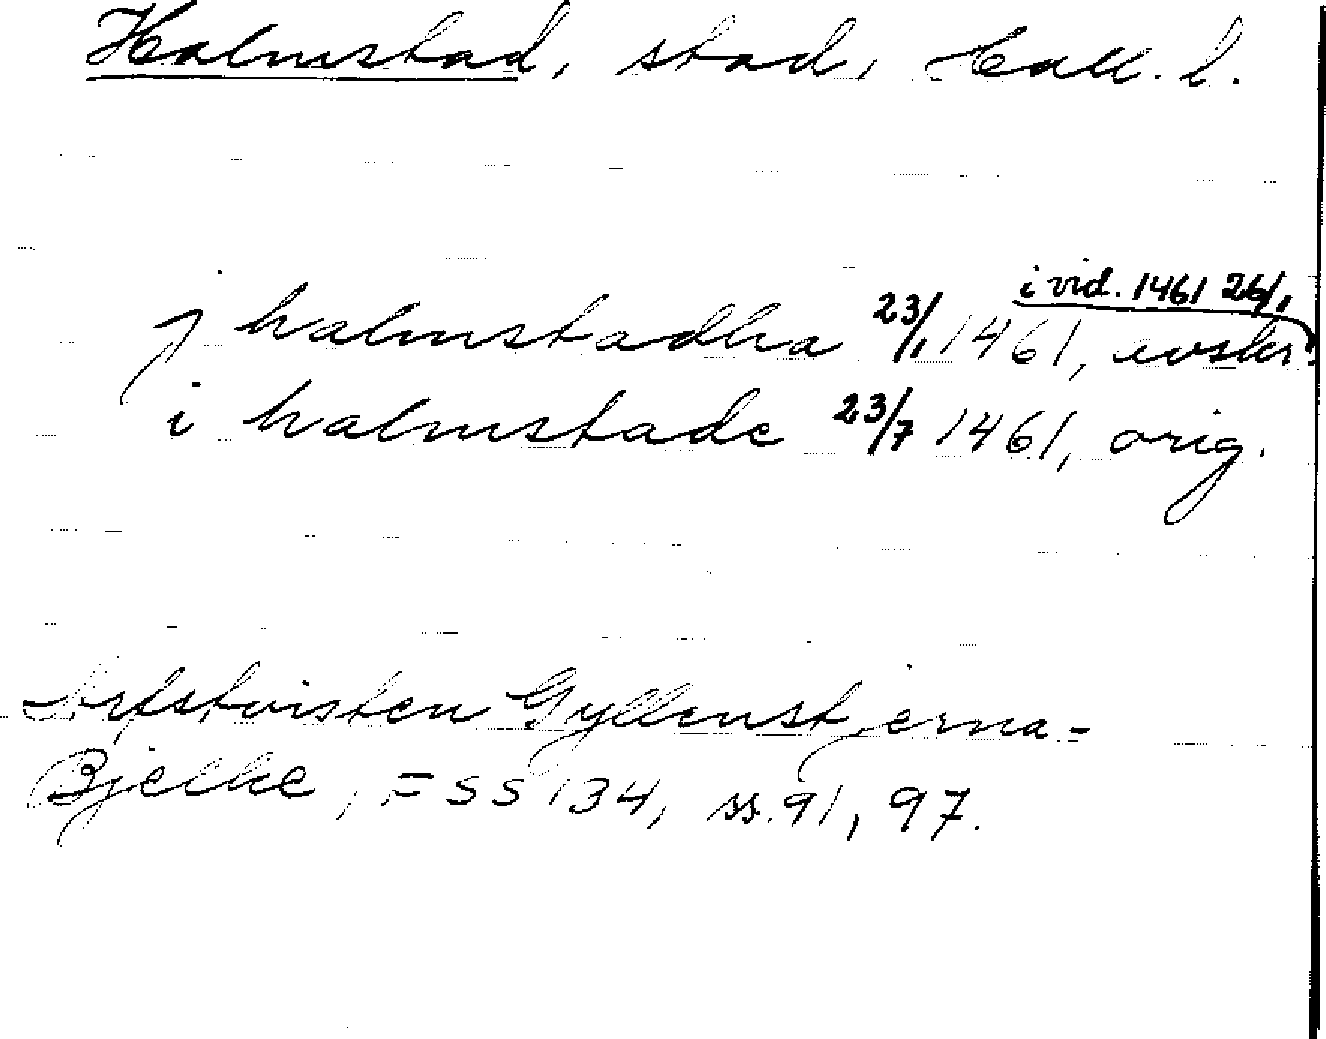 Halmstad, stad, Hall. l.
i vid. 1461 26/1
j halmstadha 23/1 1461, avskr.
i halmstade 23/7 1461, orig.
Arfstvisten Gyllenstjerna-
Bjelke, FSS 134, ss. 91, 97.